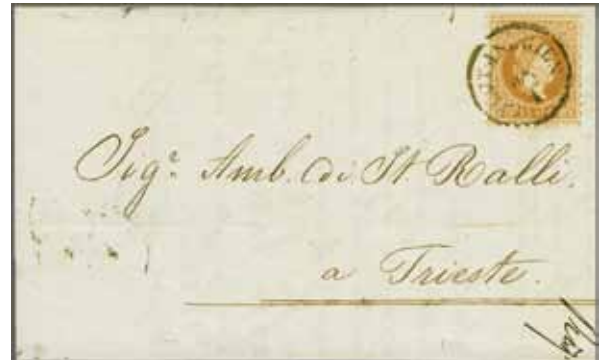 Sigr. Amb. di St. Ralli.
a Trieste.